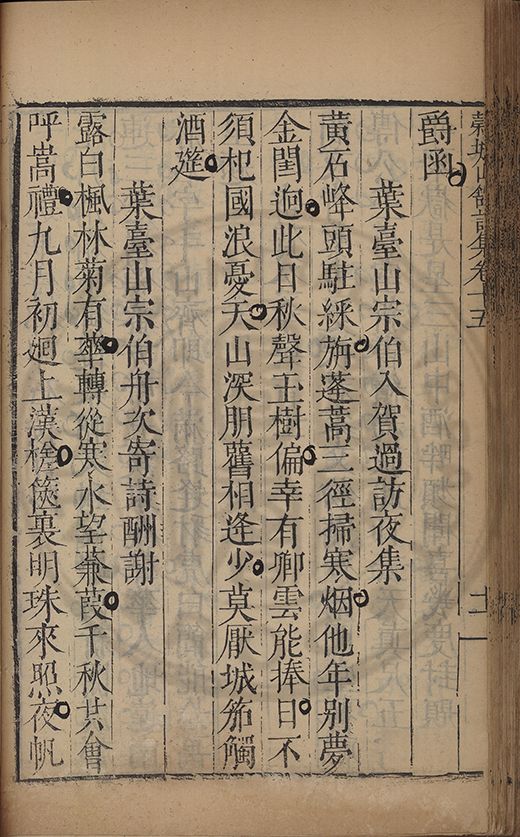 城山館詩集卷十五
十一
爵函
葉臺山宗伯入賀過訪夜集
黃石峰頭駐綵斾蓬蒿三徑掃寒烟他年別夢
金閨逈此日秋聲玉樹偏幸有卿雲能捧日不
須杞國浪憂天山深朋舊相逢少莫厭城笳觸
酒筵
葉臺山宗伯舟次寄詩酬謝
露白楓林菊有華轉從寒水望蒹葭千秋共會
呼嵩禮九月初廻上漢槎篋裏明珠來照夜帆